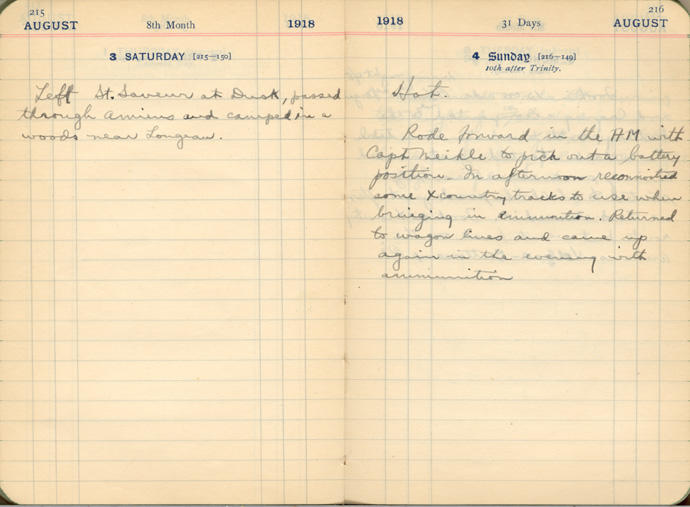 215
AUGUST 8th Month 1918
3 SATURDAY [215—150]
Left St. Saveur at Dusk, passed
through Amiens and camped in a
woods near Longeau.
216
1918 31 Days AUGUST
4 Sunday [216—149]
10th after Trinity.
Hot.
Rode forward in the AM with
Capt Meikle to pick out a battery
position. In afternoon reconnoitred
some Xcountry tracks to use when
bringing in ammunition. Returned
to wagon lines and came up
again in the evening with
ammunition